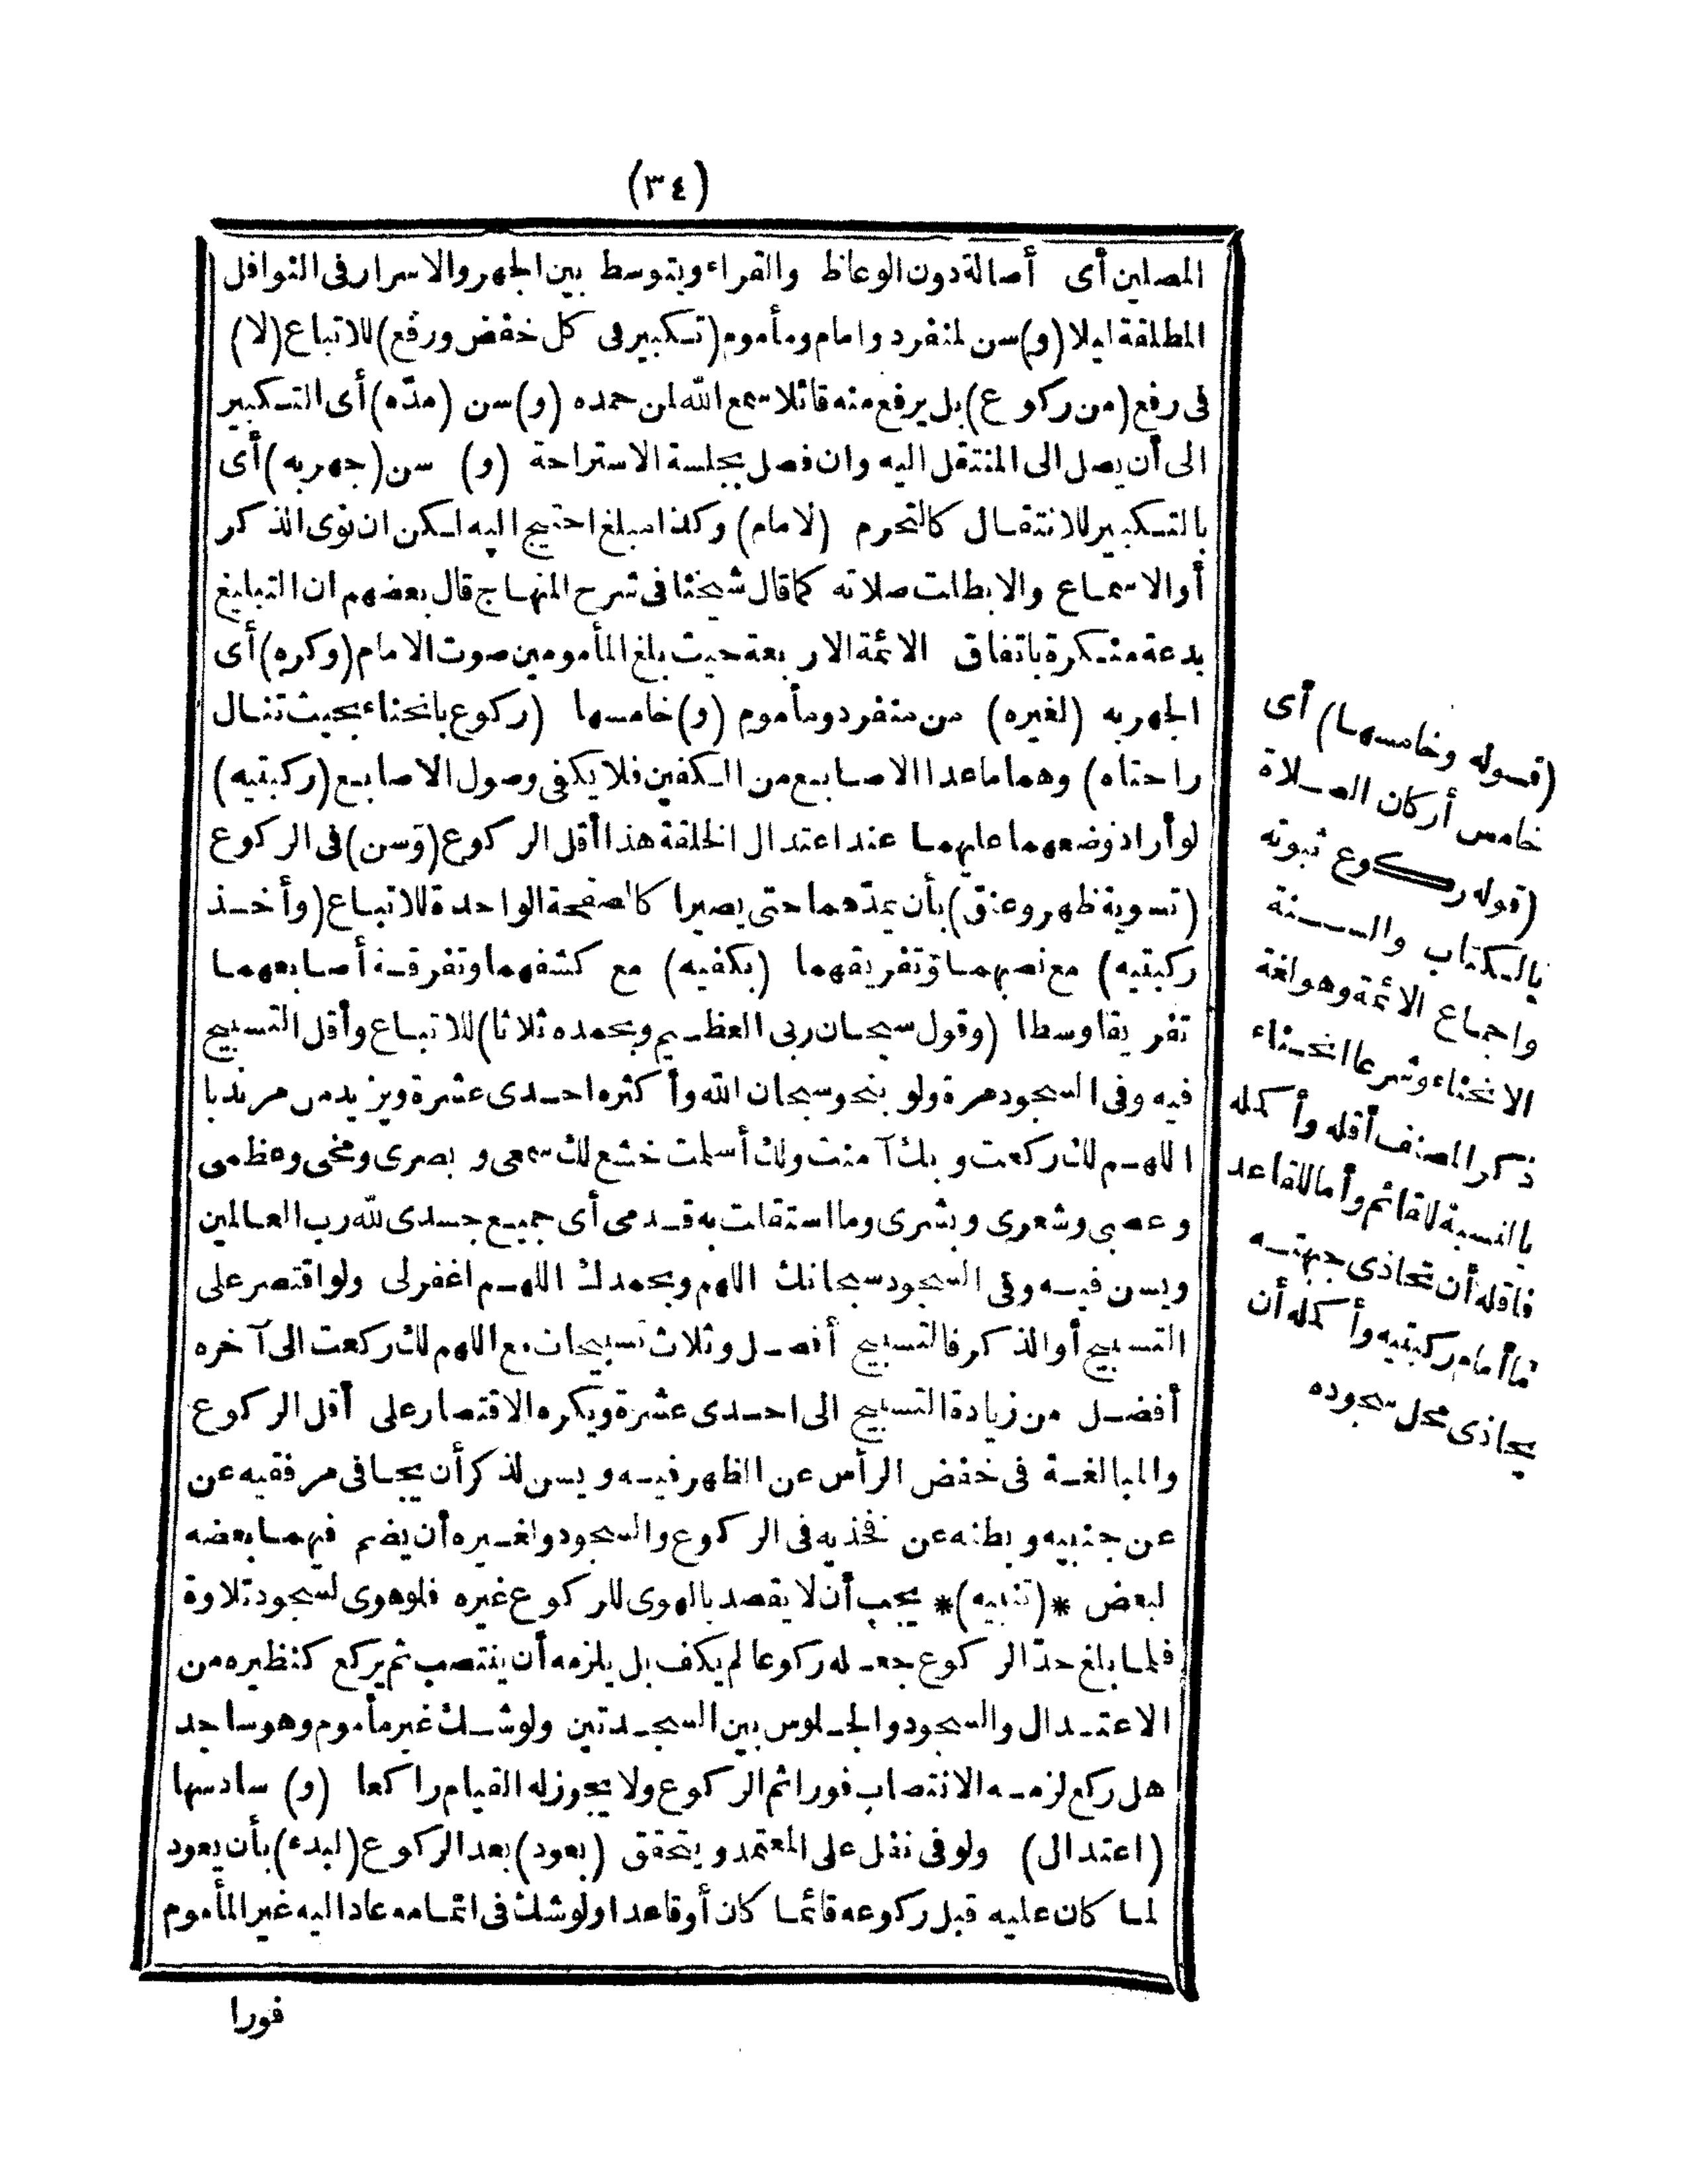 (٣٤)
المصلين أى أصالة دون الوعاظ والقراء ويتوسط بين الجهر والاسرار فى النوافل
المطلقة ليلا (و) سن لمنفرد وامام ومأموم (تكبير فى كل خفض ورفع) للاتباع (لا)
فى رفع (من ركوع) بل يرفع منه قائلا سمع الله لمن حمده (و) سن (مدّه) أى التكبير
الى أن يصل الى المنتقل اليه وان فصل بجلسة الاستراحة (و) سن (جهر به) أى
بالتكبير للانتقال كالتحرم (لامام) وكذا مبلغ احتيج اليه لكن ان نوى الذكر
أو الاسماع والا بطلت صلاته كما قال شيخنا فى شرح المنهاج قال بعضهم ان التبليغ
بدعة منكرة باتفاق الائمة الاربعة حيث بلغ المأمومين صوت الامام (وكره) أى
الجهر به (لغيره) من منفرد ومأموم (و) خامسها (ركوع بانحناء بحيث تنال
راحتاه) وهما ماعدا الاصابع من الكفين فلا يكفى وصول الاصابع (ركبتيه)
لو أراد وضعهما عليهما عند اعتدال الخلقة هذا أقل الركوع (وسن) فى الركوع
(تسوية ظهر وعنق) بأن يمدّهما حتى يصيرا كالصفيحة الواحدة للاتباع (وأخذ
ركبتيه) مع نصبهما وتفريقهما (بكفيه) مع كشفهما وتفرقة أصابعهما
تفريقا وسطا (وقول سبحان ربى العظيم وبحمده ثلاثا) للاتباع وأقل التسبيح
فيه وفى السجود مرة ولو بنحو سبحان الله وأكثره احدى عشرة ويزيد من مريدا
اللهم لك ركعت وبك آمنت ولك أسلمت خشع لك سمعى وبصرى ومخى وعظمى
وعصبى وشعرى وبشرى وما استقلت به قدمى أى جميع جسدى لله رب العالمين
ويسن فيه وفى السجود سبحانك اللهم وبحمدك اللهم اغفرلى ولو اقتصر على
التسبيح أو الذكر فالتسبيح أفضل وثلاث تسبيحات مع اللهم لك ركعت الى آخره
أفضل من زيادة التسبيح الى احدى عشرة ويكره الاقتصار على أقل الركوع
والمبالغة فى خفض الرأس عن الظهر فيه ويسن لذكر أن يجافى مرفقيه عن
عن جنبيه وبطنه عن فخذيه فى الركوع والسجود ولغيره أن يضم فيهما بعضه
لبعض *(تنبيه)* يجب أن لا يقصد بالهوى للركوع غيره فلو هوى لسجود تلاوة
فلما بلغ حدّ الركوع جعله ركوعا لم يكف بل يلزمه أن ينتصب ثم يركع كنظيره من
الاعتدال والسجود والجلوس بين السجدتين ولو شك غير مأموم وهو ساجد
هل ركع لزمه الانتصاب فورا ثم الركوع ولا يجوز له القيام راكعا (و) سادسها
(اعتدال) ولو فى نفل على المعتمد ويتحقق (بعود) بعد الركوع (لبدء) بأن يعود
لما كان عليه قبل ركوعه قائما كان أو قاعدا ولو شك فى اتمامه عاد اليه غير المأموم
فورا
(قوله وخامسها) أى
خامس أركان الصلاة
(قوله ركوع ثبوته
بالكتاب والسنة
واجماع الائمة وهو لغة
الانحناء وشرعا انحناء
ذكر المصنف أقله وأكمله
بالنسبة للقائم وأما للقاعد
فاقله أن تحاذى جبهته
ما أمام ركبتيه وأكمله أن
يحاذى محل سجوده